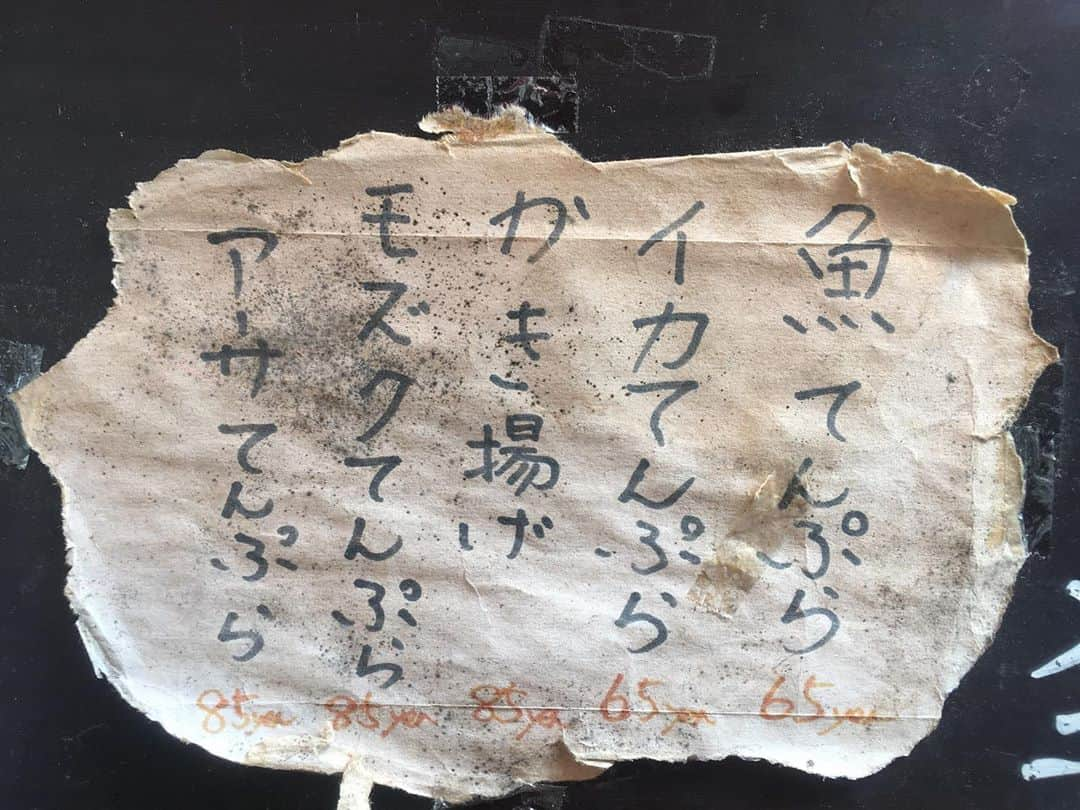 魚てんぷら
65yen
イカてんぷら
65yen
かき揚げ
85yen
モズクてんぷら
85yen
アーサてんぷら
85yen